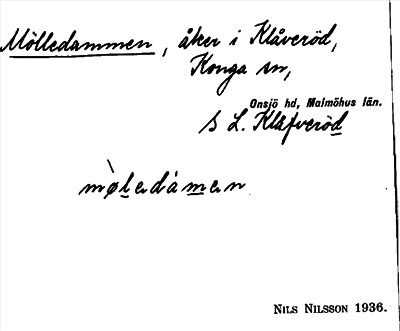 Mölledammen, åker i Klåveröd,
Konga sn,
Onsjö hd, Malmöhus län.
s L. Klåfveröd
mø̀ledám̱en
NILS NILSSON 1936.